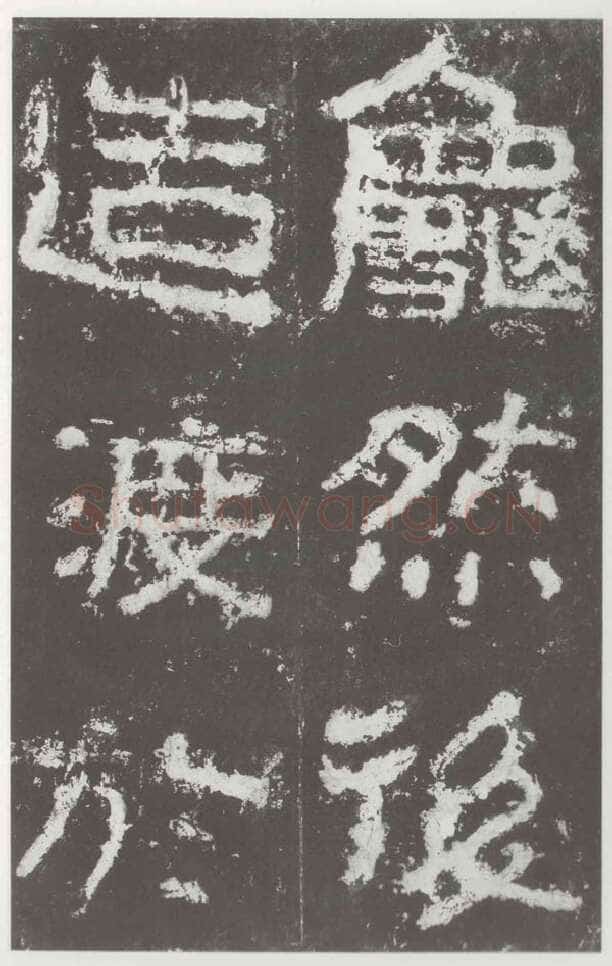 龜然後
造渡於
Shufawang.CN